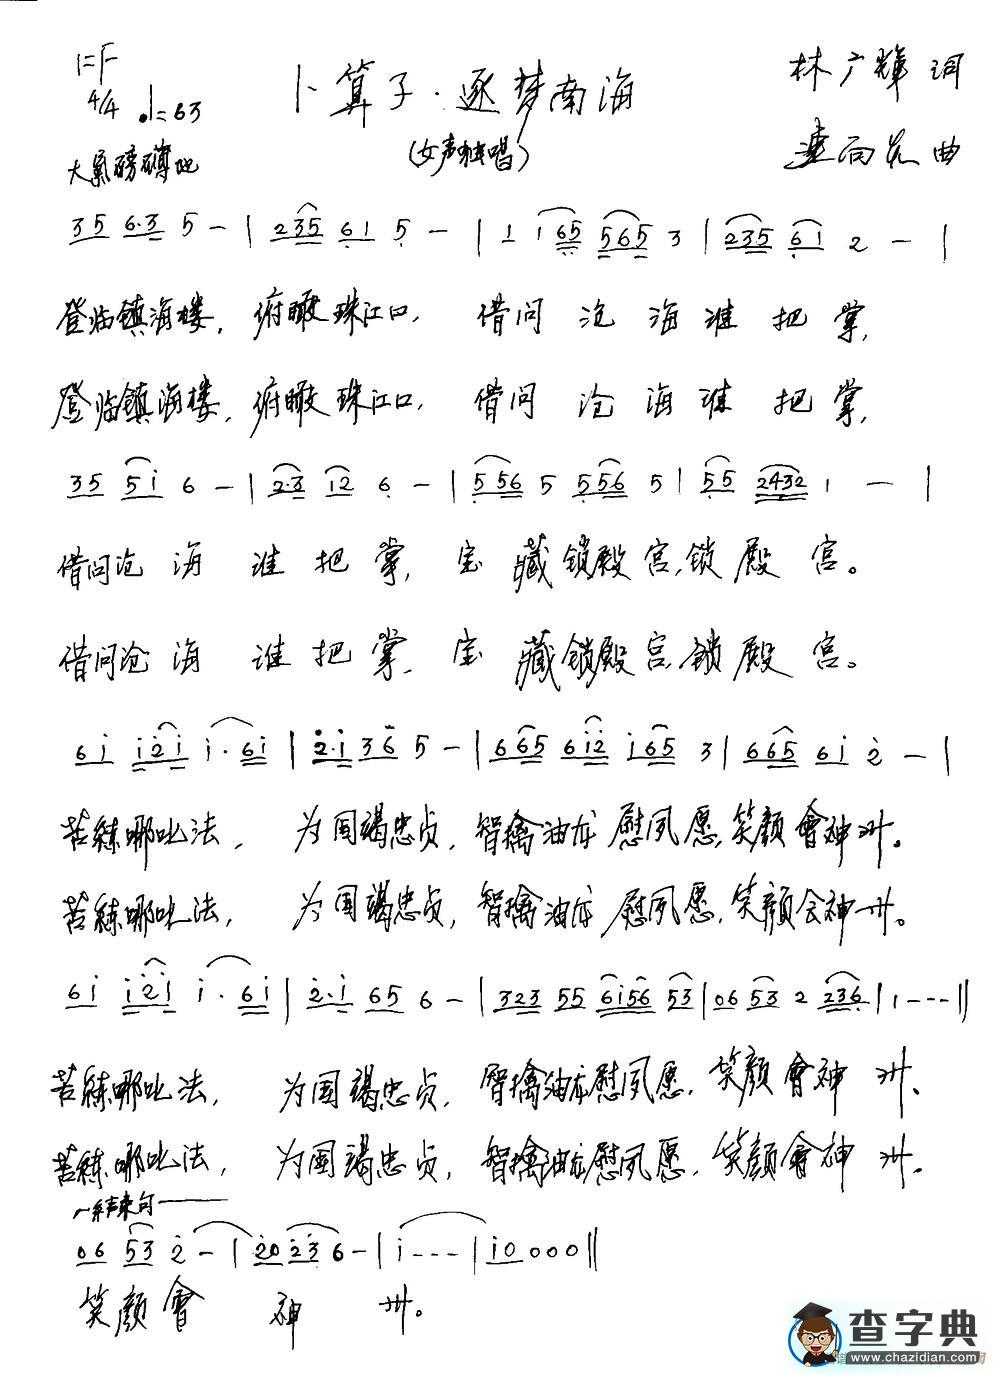 1=F
4/4 ♩=63
卜算子·逐梦南海
林广辉 词
(女声独唱)
曲
大气磅礴地
35 6·3 5 - | 235 61 5 - | 1 i65 565 3 | 235 61 2 - |
登临镇海楼，俯瞰珠江口，借问沧海谁把掌，
登临镇海楼，俯瞰珠江口，借问沧海谁把掌，
35 5i 6 - | 2·3 12 6 - | 556 5 556 5 | 55 2432 1 - |
借问沧海谁把掌，宝藏锁殿宫，锁殿宫。
借问沧海谁把掌，宝藏锁殿宫，锁殿宫。
6i i2i i·6i | 2·i 36 5 - | 665 6i2 i65 3 | 665 6i 2 - |
苦练哪吒法，为国竭忠贞，智擒油龙慰夙愿，笑颜會神州。
苦練哪吒法，为国竭忠贞，智擒油龙慰夙愿，笑颜会神州。
6i i2i i·6i | 2·i 65 6 - | 323 55 6i56 53 | 06 53 2 236 | 1 - - - ||
苦练哪吒法，为国竭忠贞，智擒油龙慰夙愿，笑颜會神州，
苦练哪吒法，为国竭忠贞，智擒油龙慰夙愿，笑颜會神州。
结束句
06 53 2 - | 20 i23 6 - | i - - - | i0 0 0 0 ||
笑颜會神州。
查字典
www.chazidian.com